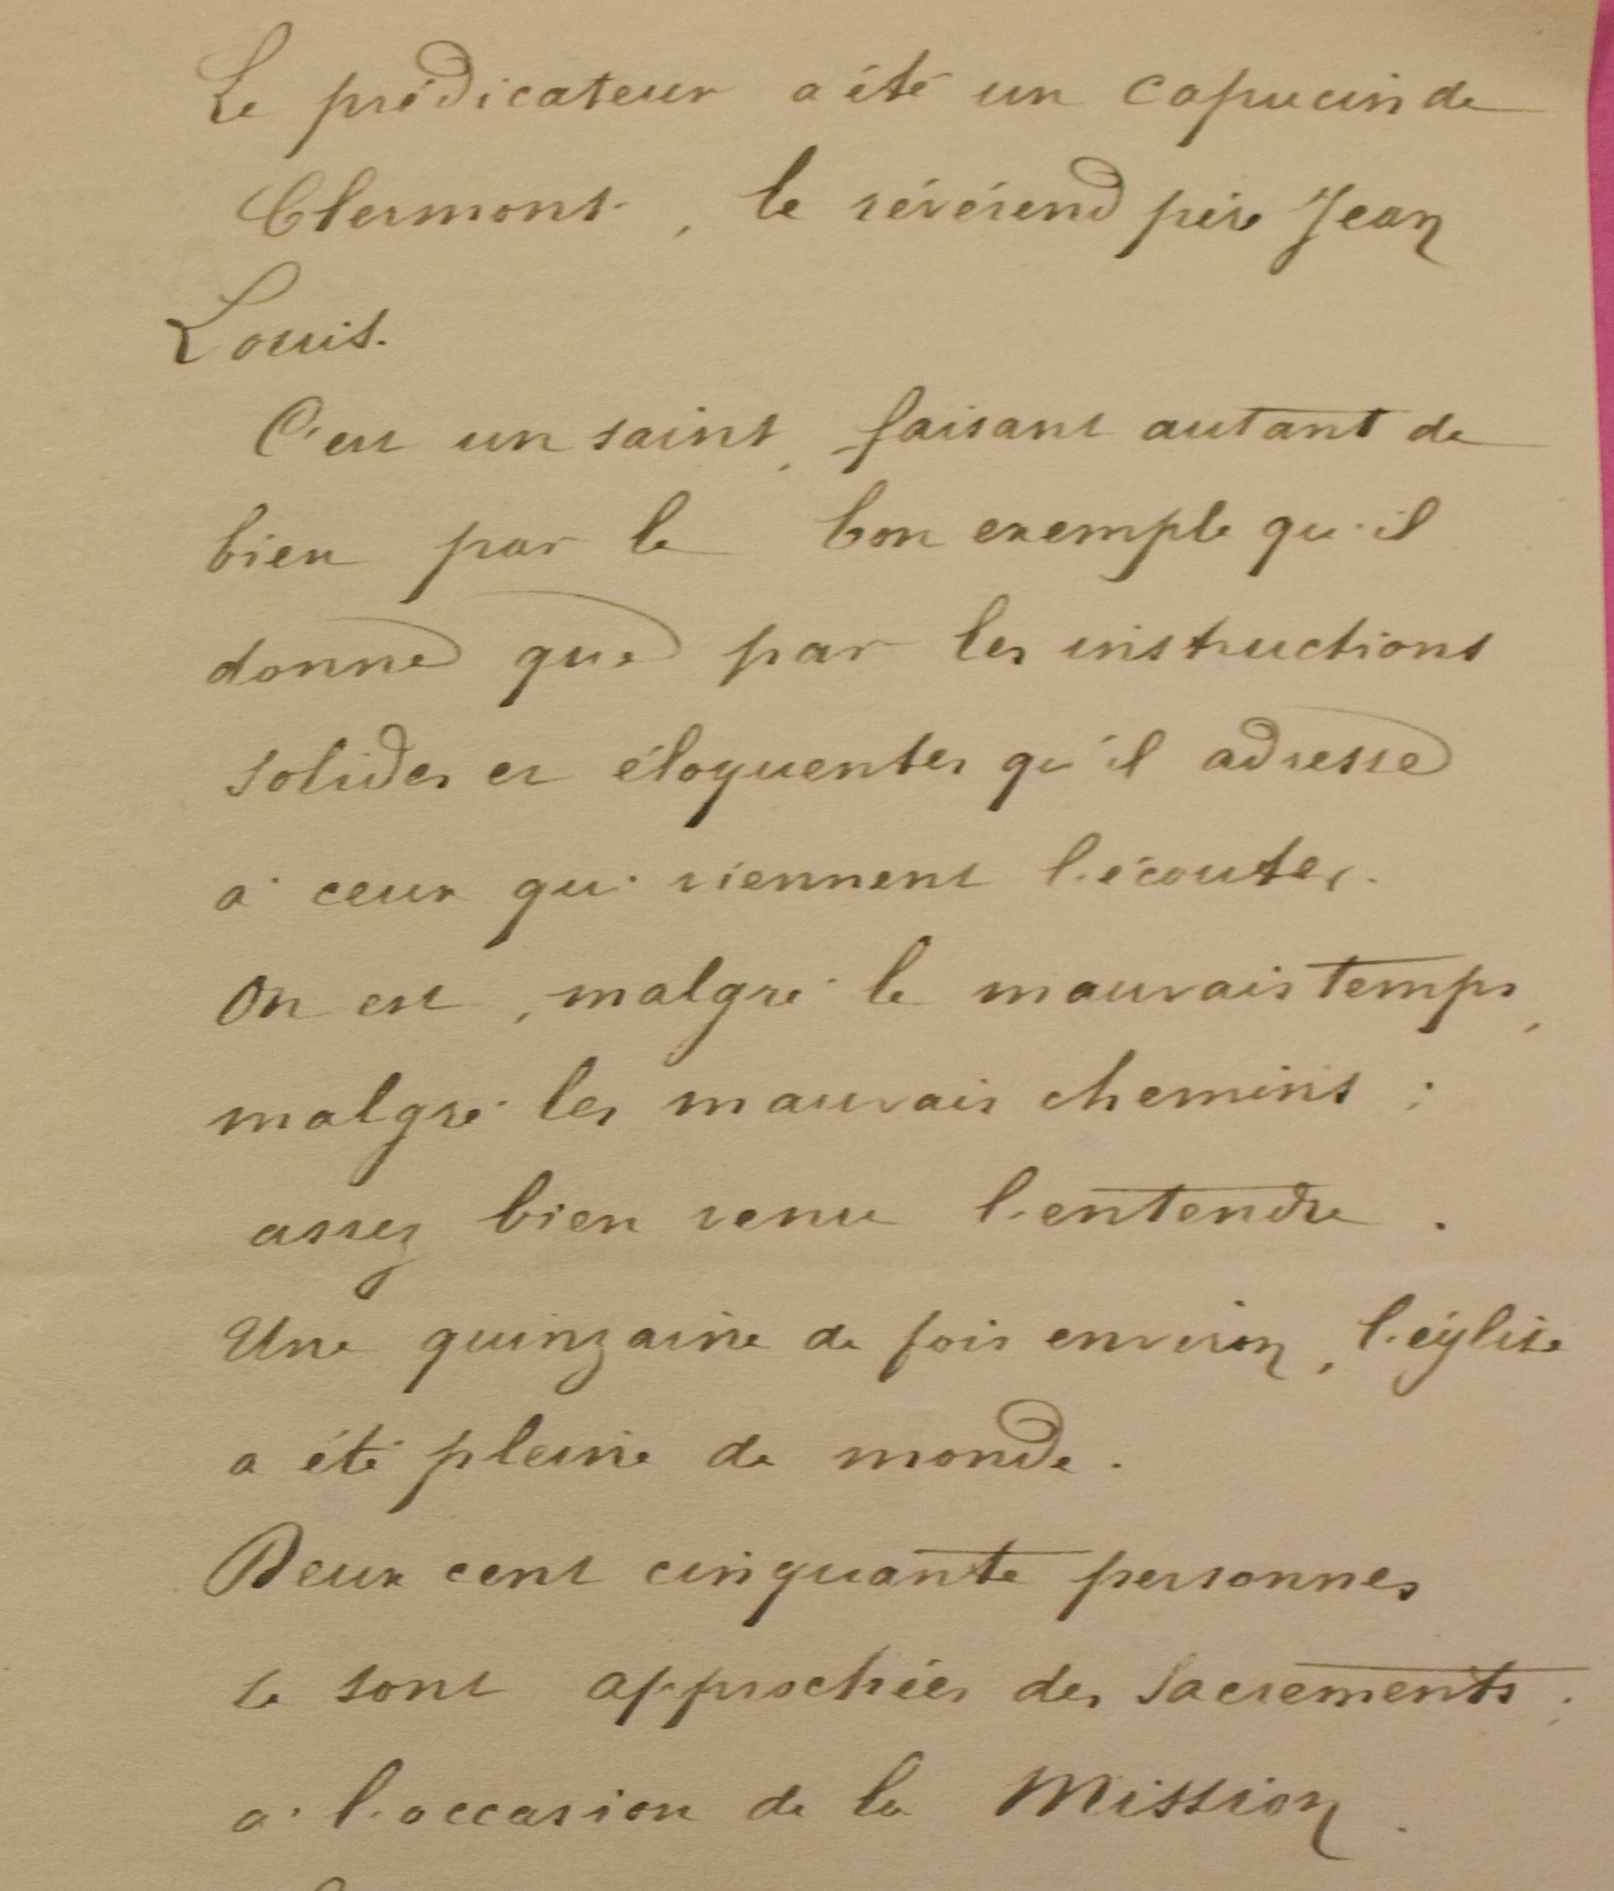 Le prédicateur a été un capucin de
Clermont, le révérend père Jean
Louis.
C'est un saint, faisant autant de
bien par le bon exemple qu'il
donne que par les instructions
solides et éloquentes qu'il adresse
à ceux qui viennent l'écouter.
On est, malgré le mauvais temps,
malgré les mauvais chemins ;
assez bien venu l'entendre.
Une quinzaine de fois environ, l'église
a été pleine de monde.
Deux cent cinquante personnes
se sont approchées des Sacrements ;
à l'occasion de la Mission.